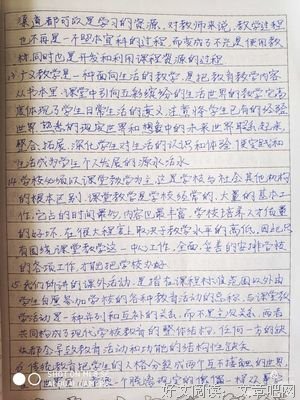 渠道都可以是学习的资源。对教师来说,教学过程
也不再是一个照本宣科的过程,而变成了不光是使用教
材,同时也是开发和利用课程资源的过程
广义教学是一种面向生活的教学,是把教育教学内容
从书本里、课堂中引向五彩缤纷的生活世界的教学,它高
度体现了学生日常生活的意义,注意将学生已有的经验
世界、熟悉的现实世界和想象中的未来世界联系起来,
整合、拓展、深化学生对生活的认识和体验,使实践和
生活成为学生个人发展的源头活水
14.学校必须以课堂教学为主,这是学校与社会其他机构
的根本区别,课堂教学是学校经常的、大量的基本工
作,它占的时间最多,内容也最丰富,学校培养人才质量
的好坏,在很大程度上取决于教学水平的高低,因此只
有围绕课堂教学这一中心工作,全面、妥善的安排学校
的各项工作,才能把学校办好
15.我们所讲的课外活动,是指在课程标准范围以外由
学生自愿参加学校的各种教育活动的总称,与课堂教
学活动是一种并列和互补的关系,而不是主次关系,两者
共同构成了现代学校教育的整体结构,任何一方的缺
失都会导致教育活动和功能的结构性缺失
传统教育把学生的人格分裂成两个互不接触的世界
好文阅读-文章吧网